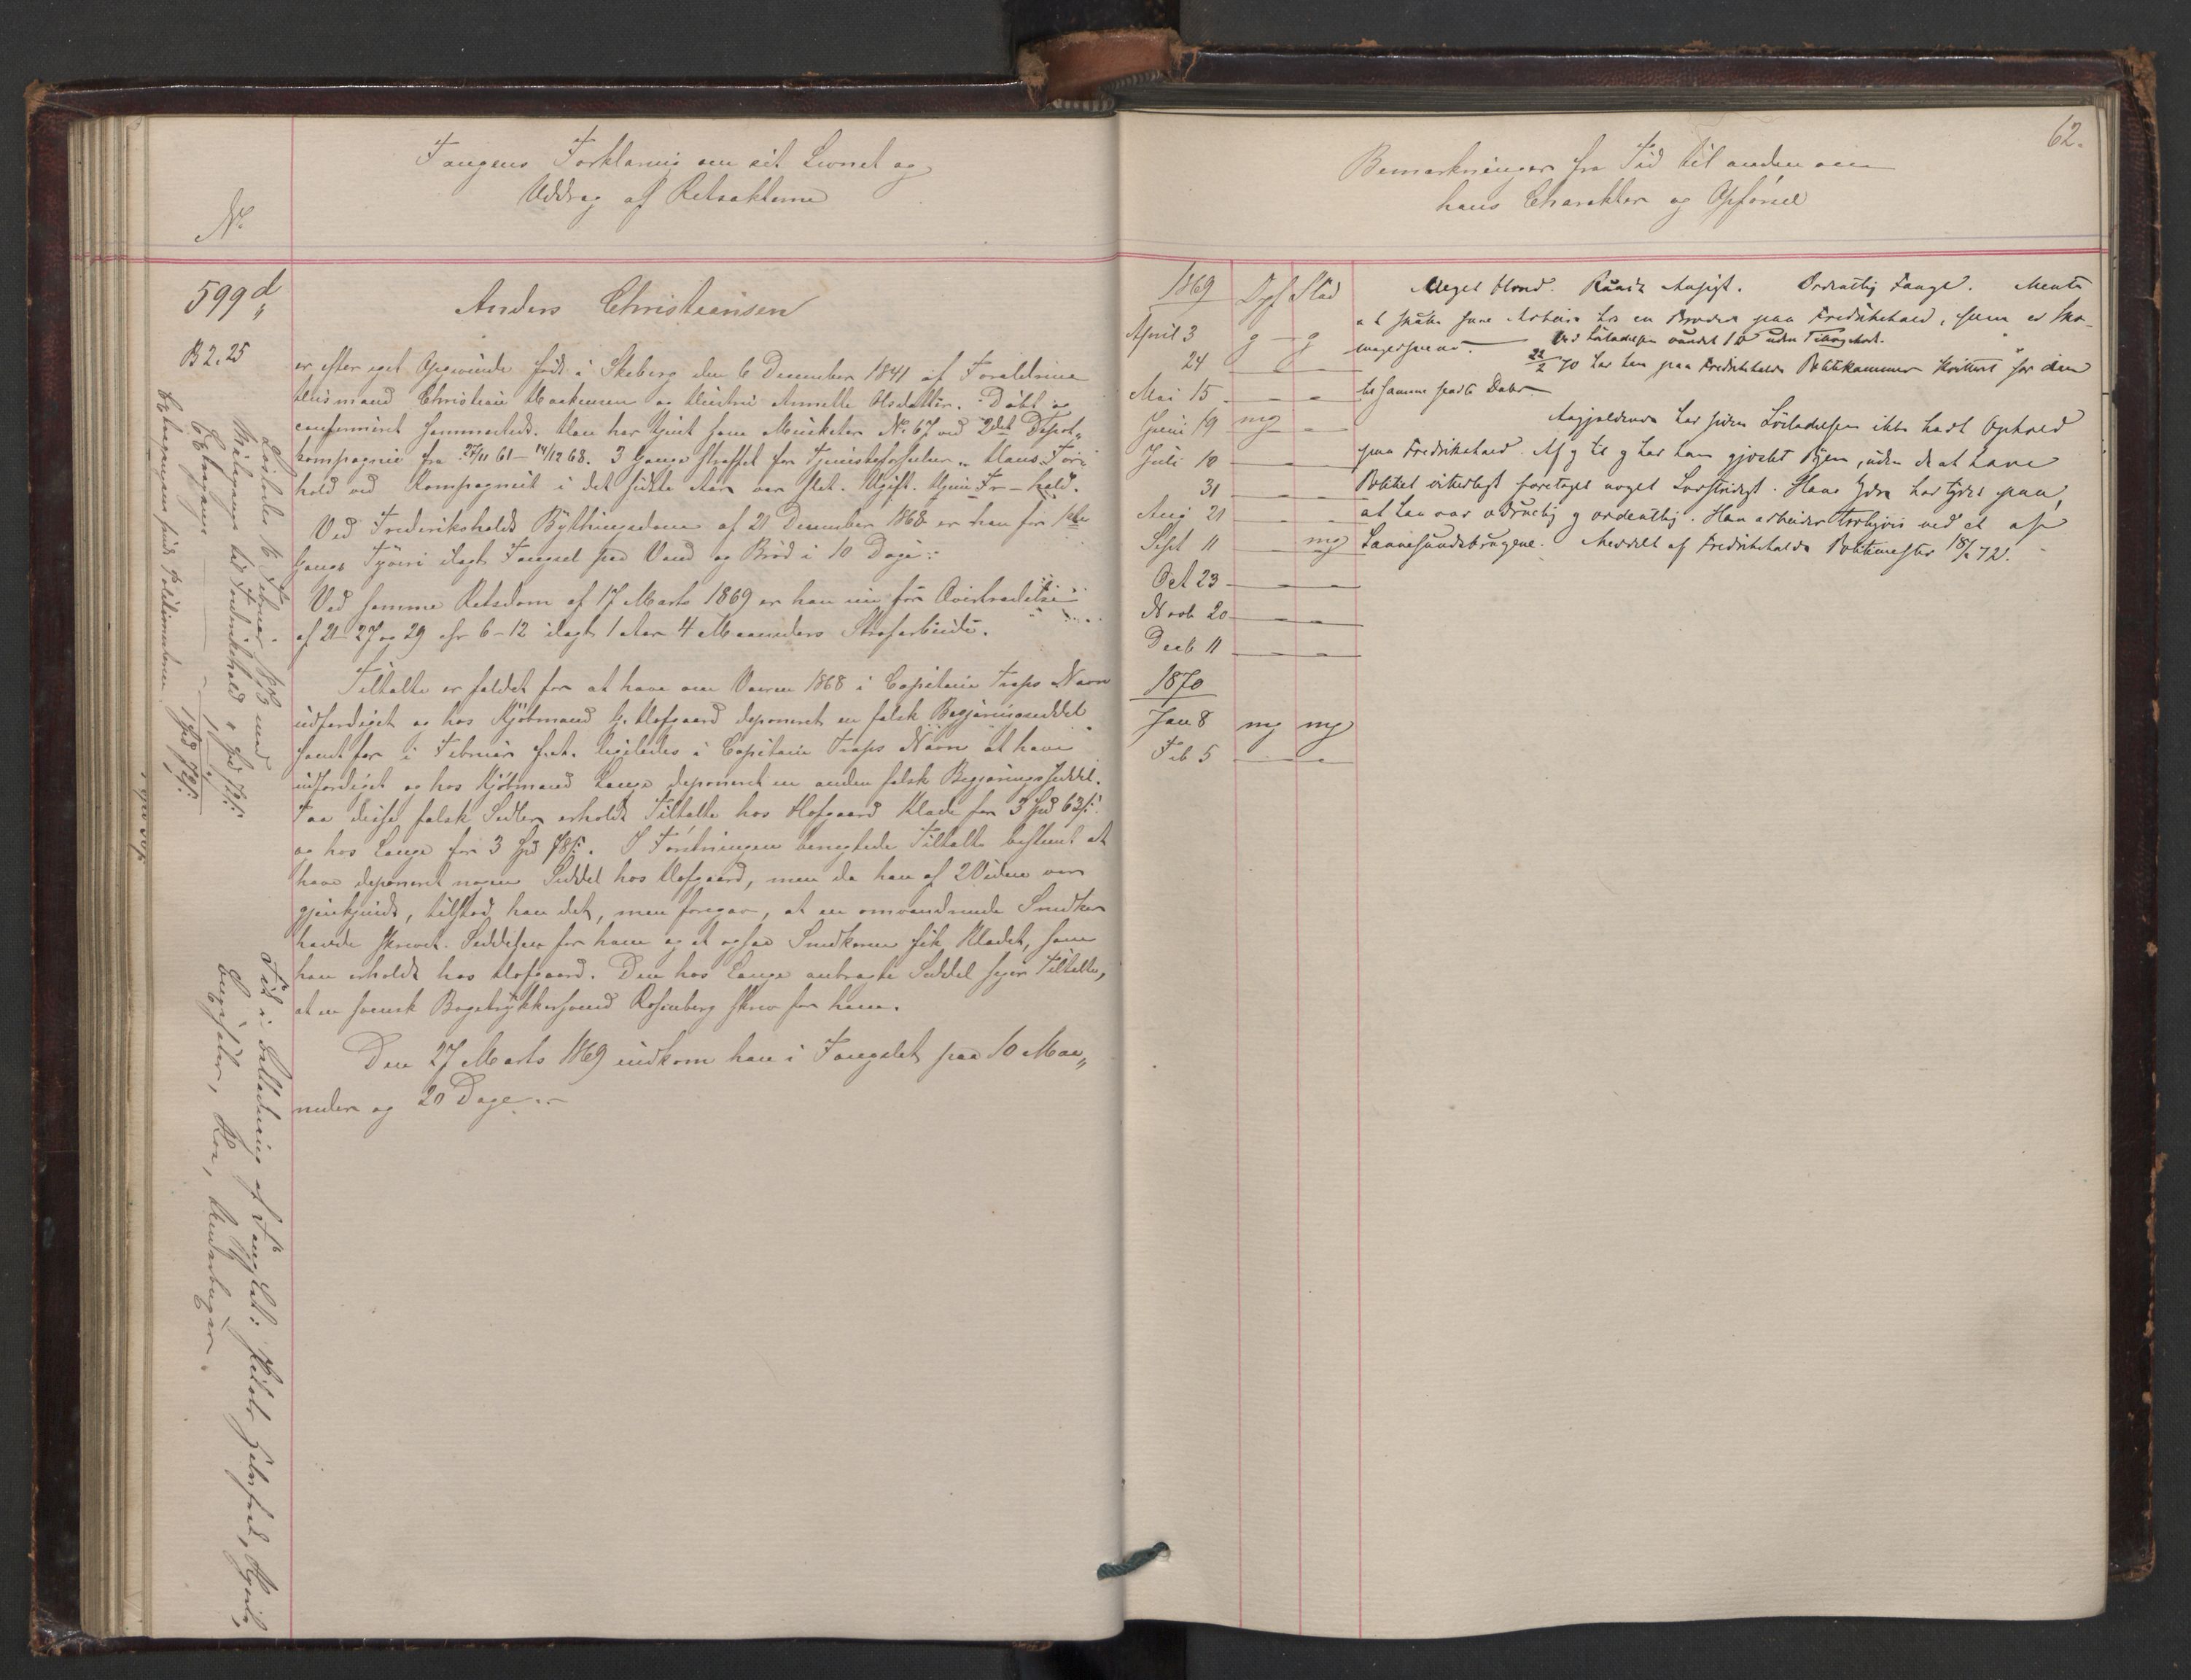 Fangens Forklaring om sit Levnet og
Uddrag af Retsakterne
No
599d
B 2.25
Anders Christiansen
er efter eget Opgivende født i Skeberg den 6 December 1841 af Forældrene
Huusmand Christian Haakensen og Hustru Annette Olsdatter. Døbt og
confirmeret sammesteds. Han har tjent som Musketer No 67 ved 2det Depot-
kompagnie fra 27/11 61 - 14/12 68. 3 Gange straffet for Tjenesteforseelser. Hans For-
hold ved Kompagniet i det sidste Aar var slet. Ugift. Hjem Fr-hald.
Ved Frederikshalds Bythingsdom af 21 December 1868 er han for 1ste
Gangs Tyveri ilagt Fængsel paa Vand og Brød i 10 Dage.
Ved samme Retsdom af 17 Marts 1869 er han nu for Overtrædelse
af 21-27 og 29 cfr 6-12 ilagt 1 Aar 4 Maaneders Strafarbeide.
Tiltalte er fældet for at have om Vaaren 1868 i Capitain Traps Navn
udfærdiget og hos Kjøbmand G. Hofgaard deponeret en falsk Begjæringsseddel
samt for i Februar f.A. ligeledes i Capitain Traps Navn at have
udfærdiget og hos Kjøbmand Lange deponeret en anden falsk Begjæringsseddel.
Paa disse falske Sedler erholdt Tiltalte hos Hofgaard Klæde for 3 Spd 63 s.
og hos Lange for 3 Spd 78 s. I Forstningen benegtede Tiltalte bestemt at
have deponeret nogen Seddel hos Hofgaard, men da han af 2 Vidner var
gjenkjendt, tilstod han det, men foregav, at en omvandrende Snedker
havde skrevet Seddelen for ham og at ogsaa Snedkeren fik Klædet, som
han erholdt hos Hofgaard. Den hos Lange anbragte Seddel siger Tiltalte,
at en svensk Bogtrykkersvend Rosenberg skrev for ham.
Den 27 Marts 1869 indkom han i Fængslet paa 10 Maa-
neder og 20 Dage.
Løslodes 16 Februar 1870 med
Reisepenge til Frederikshald
Fik i Beklædning af Fængslet:
62.
Bemærkninger fra Tid til anden om
hans Charakter og Opførsel
1869 Opf Flid
April 3 g g
24 - -
Mai 15 - -
Juni 19 mg -
Juli 10 - -
31 - -
Aug 21 - -
Sept 11 - mg
Oct 23 - -
Novb 20 - -
Decb 11 - -
1870
Jan 8 mg mg
Feb 5 - -
Meget blond. Rundt Ansigt. Ordentlig Fange. Mente
at skulle faae Arbeide hos en Broder paa Fredrikshald, som er Sko-
magersvend. Ved Løsladelsen
22/2 70 har han paa Fredrikshalds Politikammer kvitteret for den
Angjældende har siden Løsladelsen ikke havt Ophold
paa Fredrikshald. Af og til har han gjæstet Byen, uden at have
Politiet vitterligt foretaget noget Lovstridigt. Hans Ydre har tydet paa,
at han var ædruelig og ordentlig. Han arbeider ved et af
Sannesundsbrugene. Meddelt af Fredrikshalds Politimester 18/ 72.